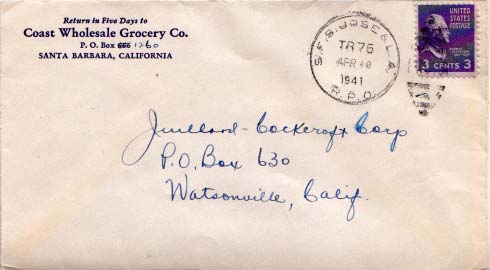 Return in Five Days to
Coast Wholesale Grocery Co.
P. O. Box 666 1260
SANTA BARBARA, CALIFORNIA
S.F.S. JOSE & L.A.
TR 76
APR 10
1941
R.P.O.
UNITED
STATES
POSTAGE
3 CENTS 3
Juillard-Cockcroft Corp
P.O. Box 630
Watsonville, Calif.